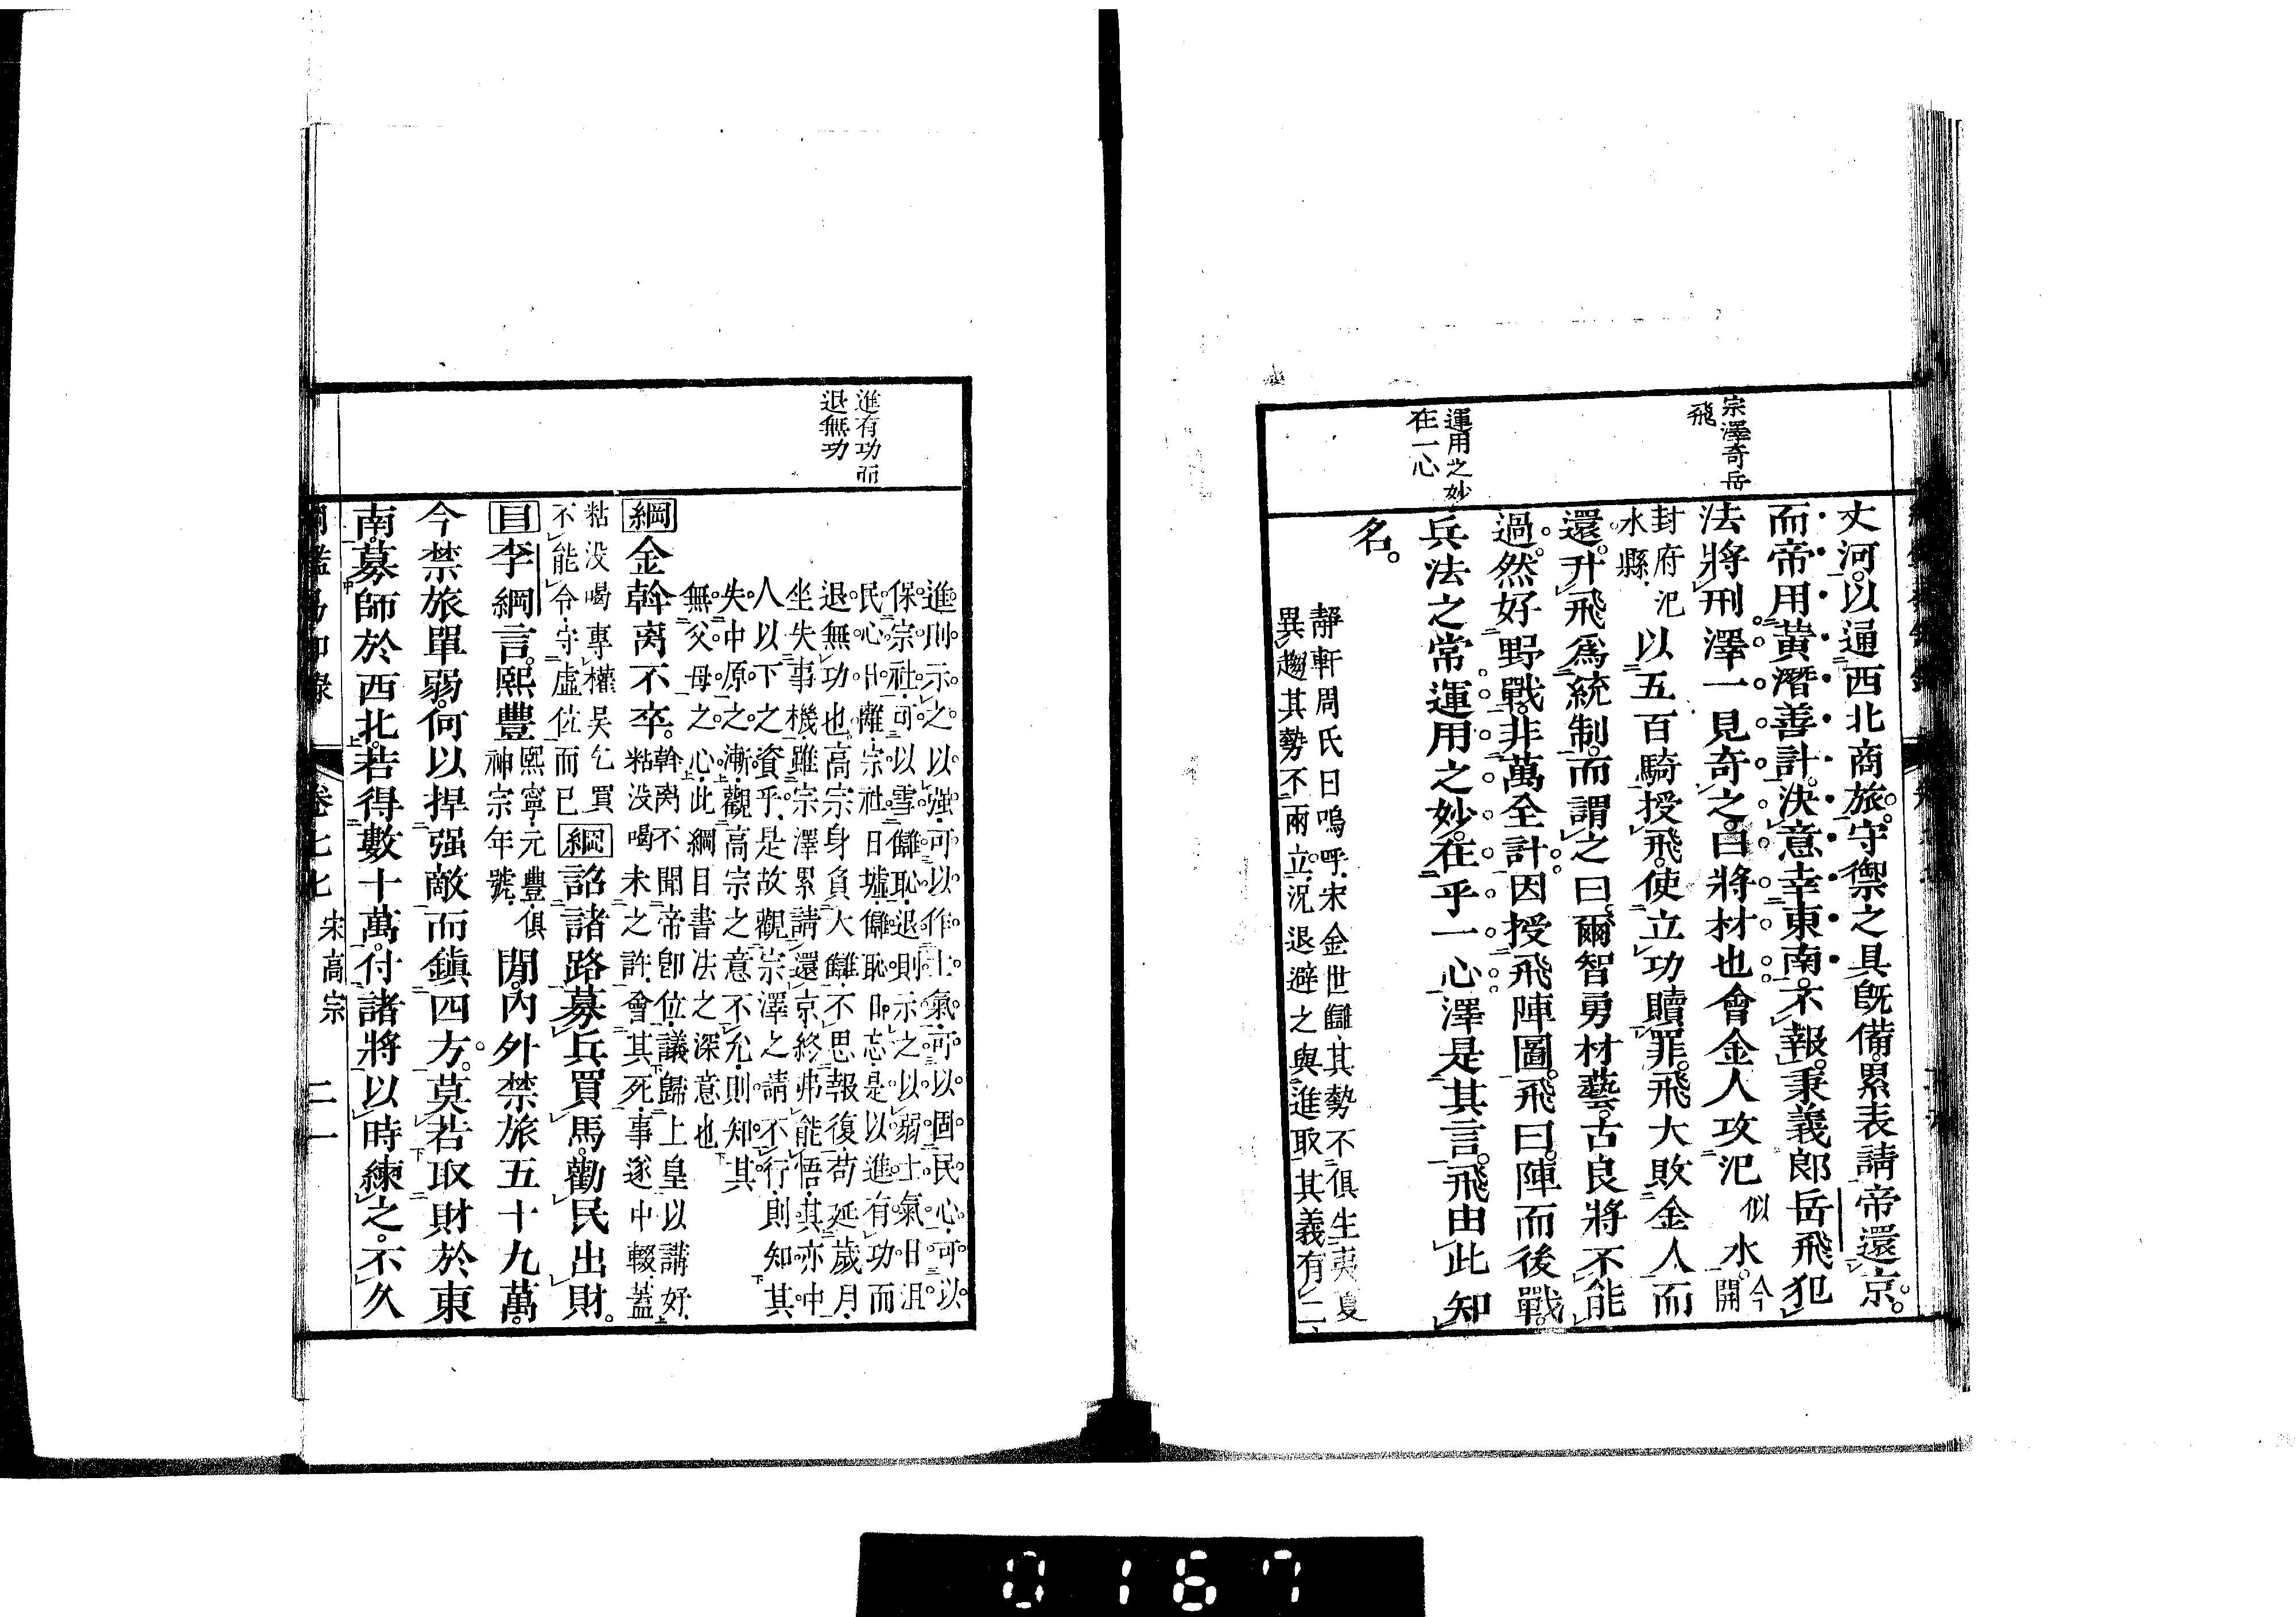 宗澤奇岳
飛
運用之妙
在一心
丈河。以通西北商旅。守禦之具既備。累表請帝還京。
而帝用黃潛善計。決意幸東南。不報。秉義郎岳飛犯
法將刑。澤一見奇之。曰將材也會金人攻汜似水。今開
封府汜
水縣以五百騎授飛。使立功贖罪。飛大敗金人而
還。升飛爲統制。而謂之曰。爾智勇材藝。古良將不能
過。然好野戰。非萬全計。因授飛陣圖。飛曰。陣而後戰。
兵法之常。運用之妙。在乎一心。澤是其言。飛由此知
名。
靜軒周氏曰嗚呼宋金世讎其勢不俱生夷夏
異趨其勢不兩立況退避之與進取其義有二
進有功而
退無功
進則示之以強可以作士氣可以固民心可以
保宗社可以雪讎恥退則示之以弱士氣日沮
民心日離宗社日墟讎恥日忘是以進有功而
退無功也高宗身負大讎不思報復苟延歲月
坐失事機雖宗澤累請還京終弗能悟其亦中
人以下之資乎是故觀宗澤之請不行則知其
失中原之漸觀高宗之意不允則知其
無父母之心此綱目書法之深意也
綱金斡离不卒。斡离不聞帝卽位議歸上皇以講好
粘没喝未之許會其死事遂中輟蓋
粘没喝專權吴乞買
不能令守虛位而已綱詔諸路募兵買馬。勸民出財。
目李綱言。熙豐熙寧元豐俱
神宗年號閒。內外禁旅五十九萬。
今禁旅單弱。何以捍强敵而鎮四方。莫若取財於東
南。募師於西北。若得數十萬。付諸將以時練之。不久
卷七七 宋高宗 二一
0167